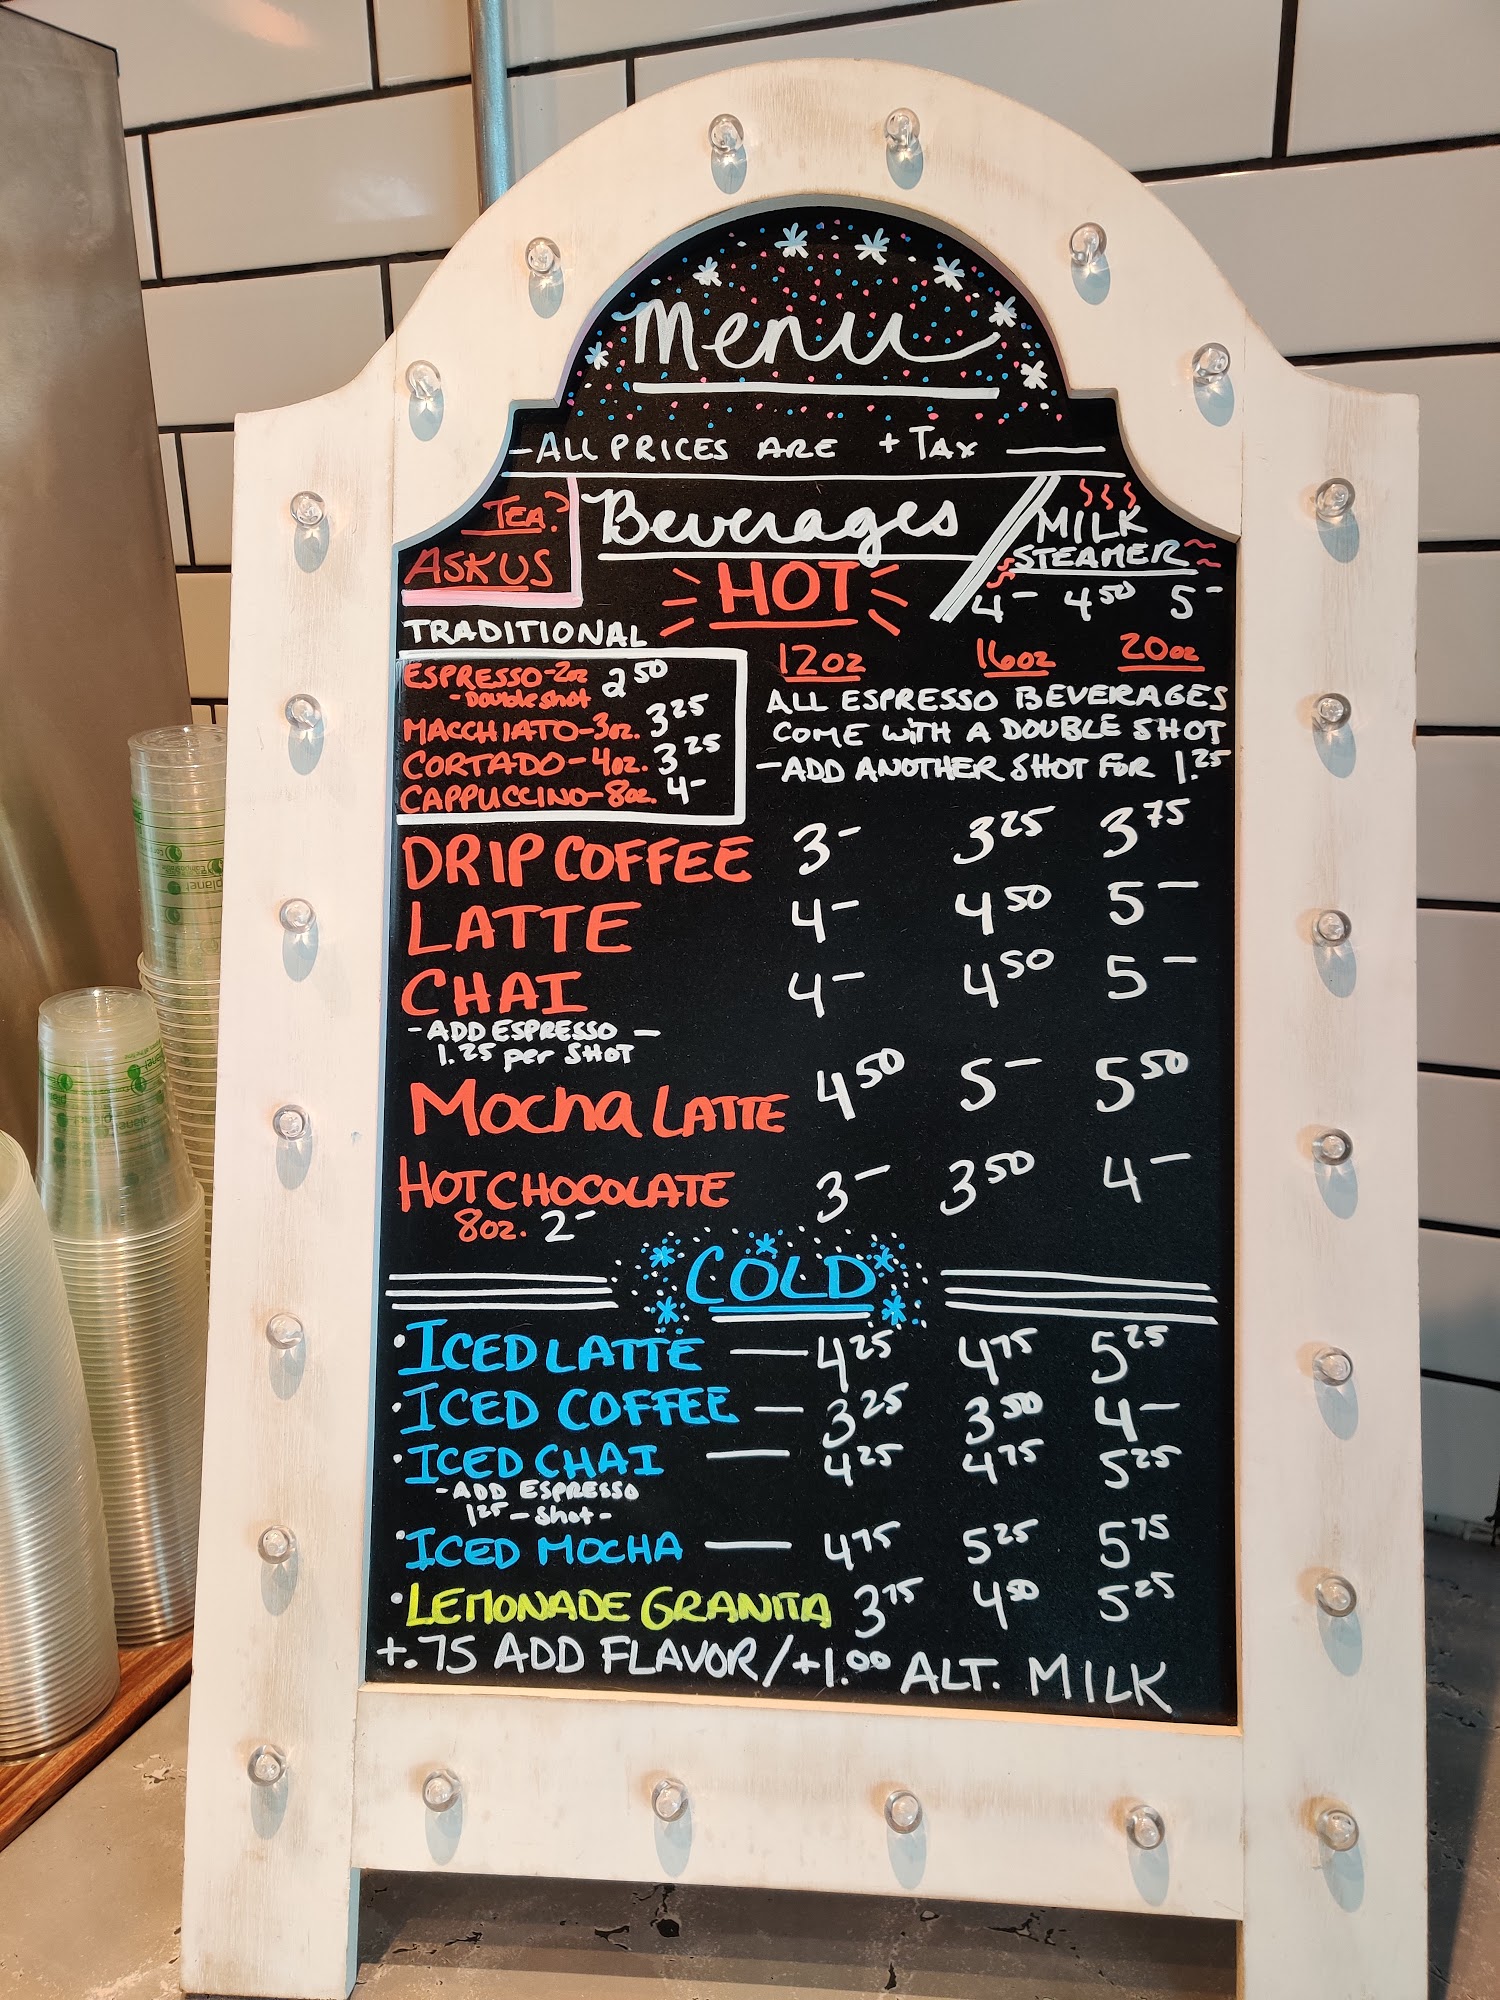 Menu
-ALL PRICES ARE + TAX
TEA?
ASK US
Beverages
MILK
STEAMER
4- 4 50 5-
HOT
TRADITIONAL
ESPRESSO-2oz 2 50
-Double shot
MACCHIATO-3oz. 3 25
CORTADO-4oz. 3 25
CAPPUCCINO-8oz. 4-
12oz 16oz 20oz
ALL ESPRESSO BEVERAGES
COME WITH A DOUBLE SHOT
-ADD ANOTHER SHOT FOR 1.25
DRIP COFFEE 3- 3 25 3 75
LATTE 4- 4 50 5-
CHAI 4- 4 50 5-
-ADD ESPRESSO-
1.25 per SHOT
Mocha LATTE 4 50 5- 5 50
HOT CHOCOLATE 3- 3 50 4-
8oz. 2-
COLD
·ICED LATTE — 4 25 4 75 5 25
·ICED COFFEE — 3 25 3 50 4-
·ICED CHAI — 4 25 4 75 5 25
-ADD ESPRESSO
1 25 - Shot-
·ICED MOCHA — 4 75 5 25 5 75
·LEMONADE GRANITA 3 75 4 50 5 25
+.75 ADD FLAVOR/+1.00 ALT. MILK
planet